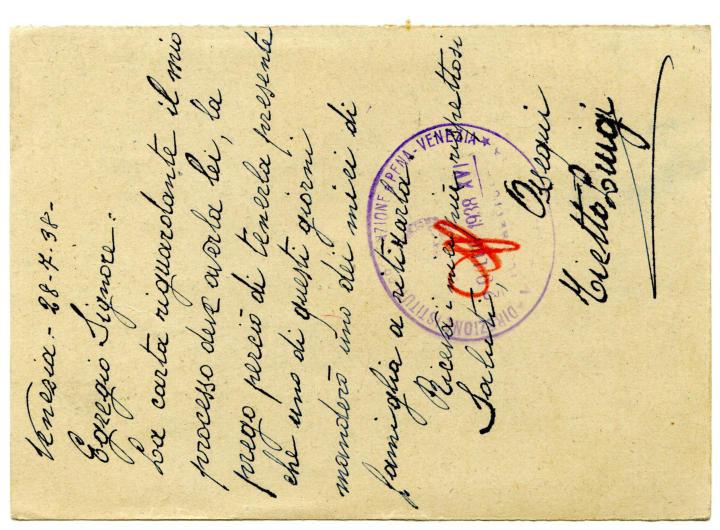 Venezia - 28-7-38-
Egregio Signore.
La carta riguardante il mio
processo deve averla lei, la
prego perciò di tenerla presente
che uno di questi giorni
manderò uno dei miei di
famiglia a retirarla.
Riceva i miei più rispettosi
Saluti,
Ossequi
Luigi
DIREZIONE ISTITUTO PENA - VENEZIA
1938 XVI